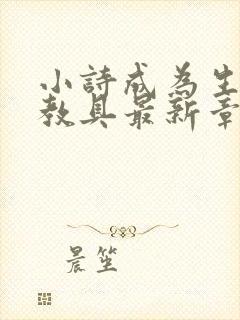 小詩成為生
教具最新章
晨笙